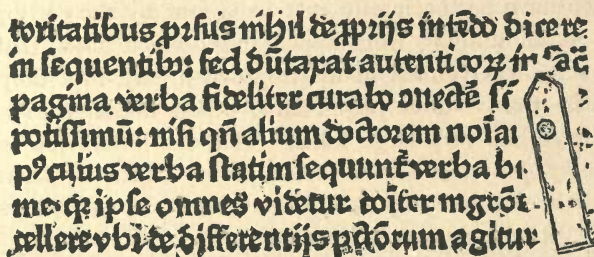 toritatibus prſus nihil de ꝓprijs intēdo dicere
in ſequentibꝰ: ſed dūtaxat autenticoꝝ in ſac̄
pagina verba fideliter curabo ↄnectē ſi
potiſſimū: niſi qn̄ alium doctorem noīa
pꝰ cuius verba ſtatim ſequunt̄ verba
me ipſe omnes videtur
cellere vbi de differentijs pctōrum agitur